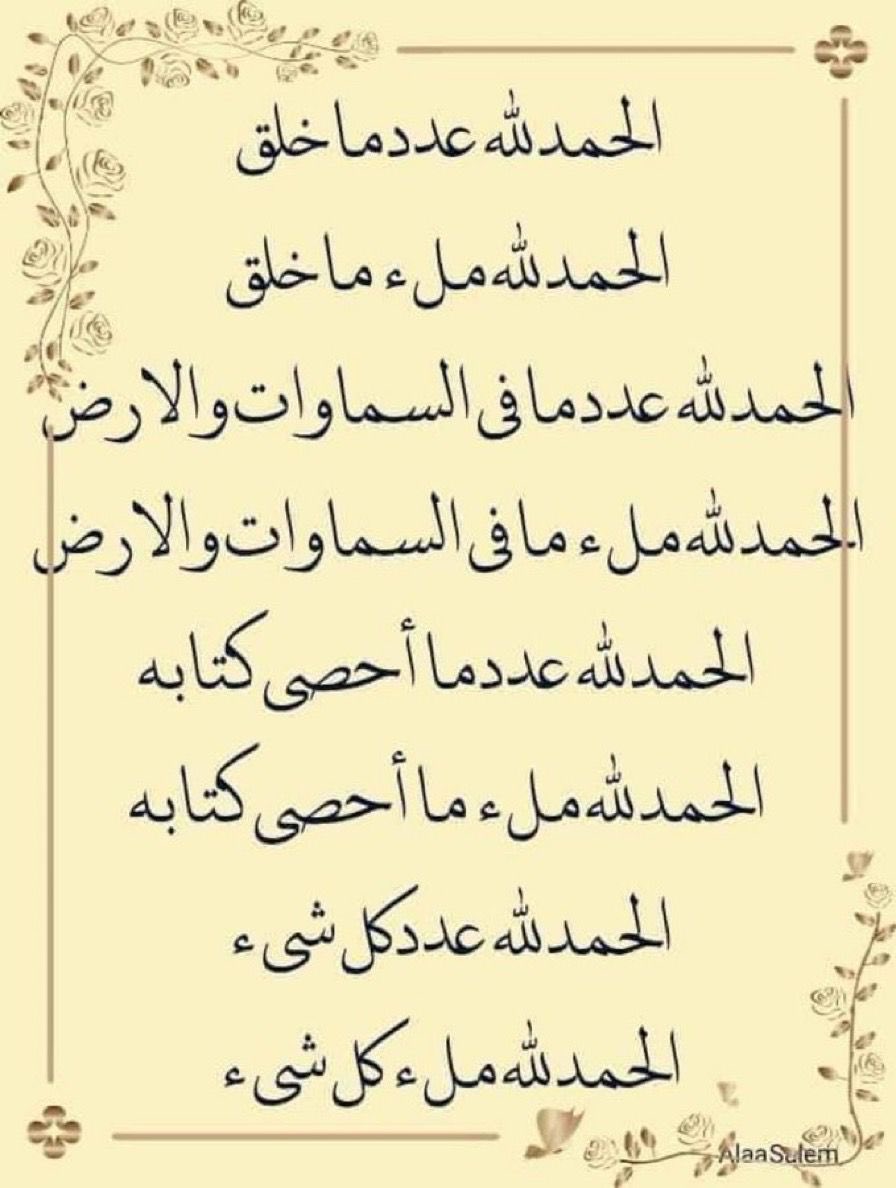 الحمدلله عددما خلق
الحمدلله ملء ما خلق
الحمدلله عددما فى السماوات والارض
الحمدلله ملء ما فى السماوات والارض
الحمدلله عددما أحصى كتابه
الحمدلله ملء ما أحصى كتابه
الحمدلله عددكل شىء
الحمدلله ملء كل شىء
AlaaSalem